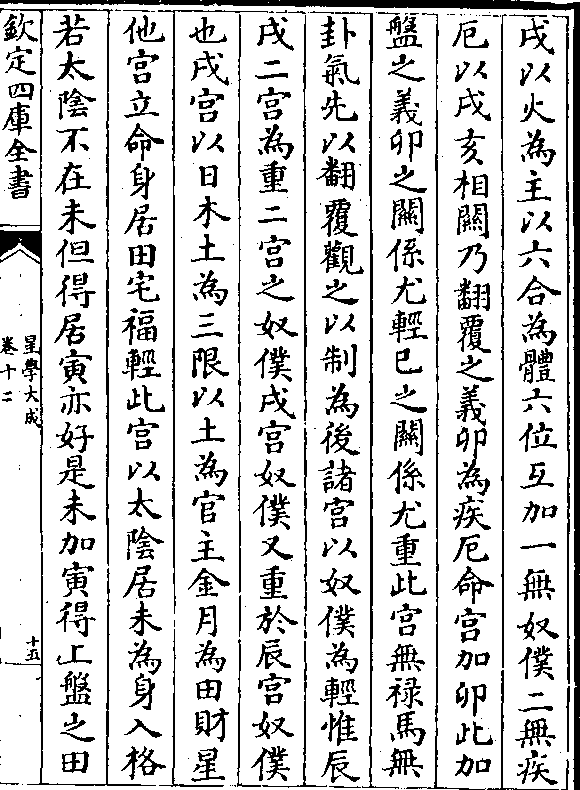 戌以火為主以六合為體六位互加一無奴僕二無疾
厄以戌亥相關乃翻覆之義卯為疾厄命宮加卯此加
盤之義卯之關係尤輕巳之關係尤重此宮無禄馬無
卦氣先以翻覆觀之以制為後諸宮以奴僕為輕惟辰
戌二宮為重二宮之奴僕戌宮奴僕又重於辰宮奴僕
也戌宮以日木土為三限以土為官主金月為田財星
他宮立命身居田宅福輕此宮以太陰居未為身入格
若太陰不在未但得居寅亦好是未加寅得上盤之田
欽定四庫全書
星學大成
卷十二
十五